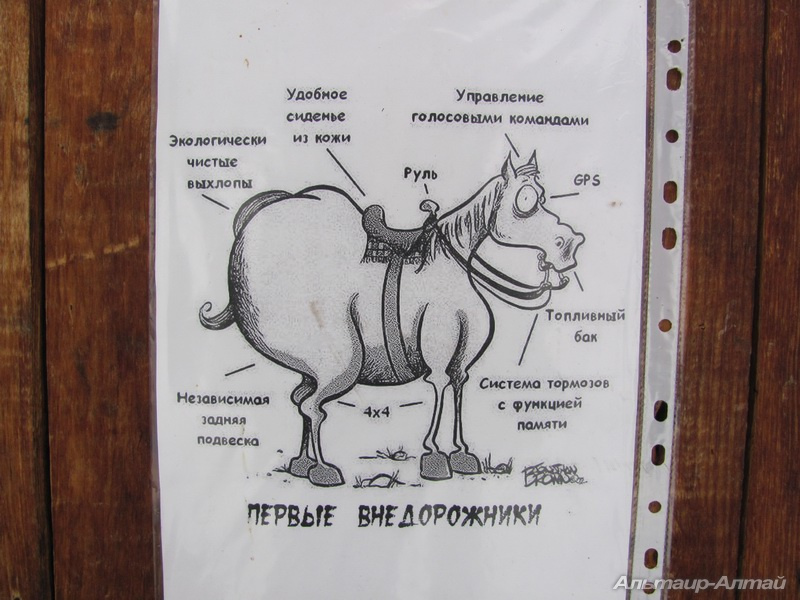 Удобное
сиденье
из кожи
Управление
голосовыми командами
Экологически
чистые
выхлопы
Руль
GPS
Топливный
бак
Независимая
задняя
подвеска
4x4
Система тормозов
с функцией
памяти
ПЕРВЫЕ ВНЕДОРОЖНИКИ
Альтаир-Алтай